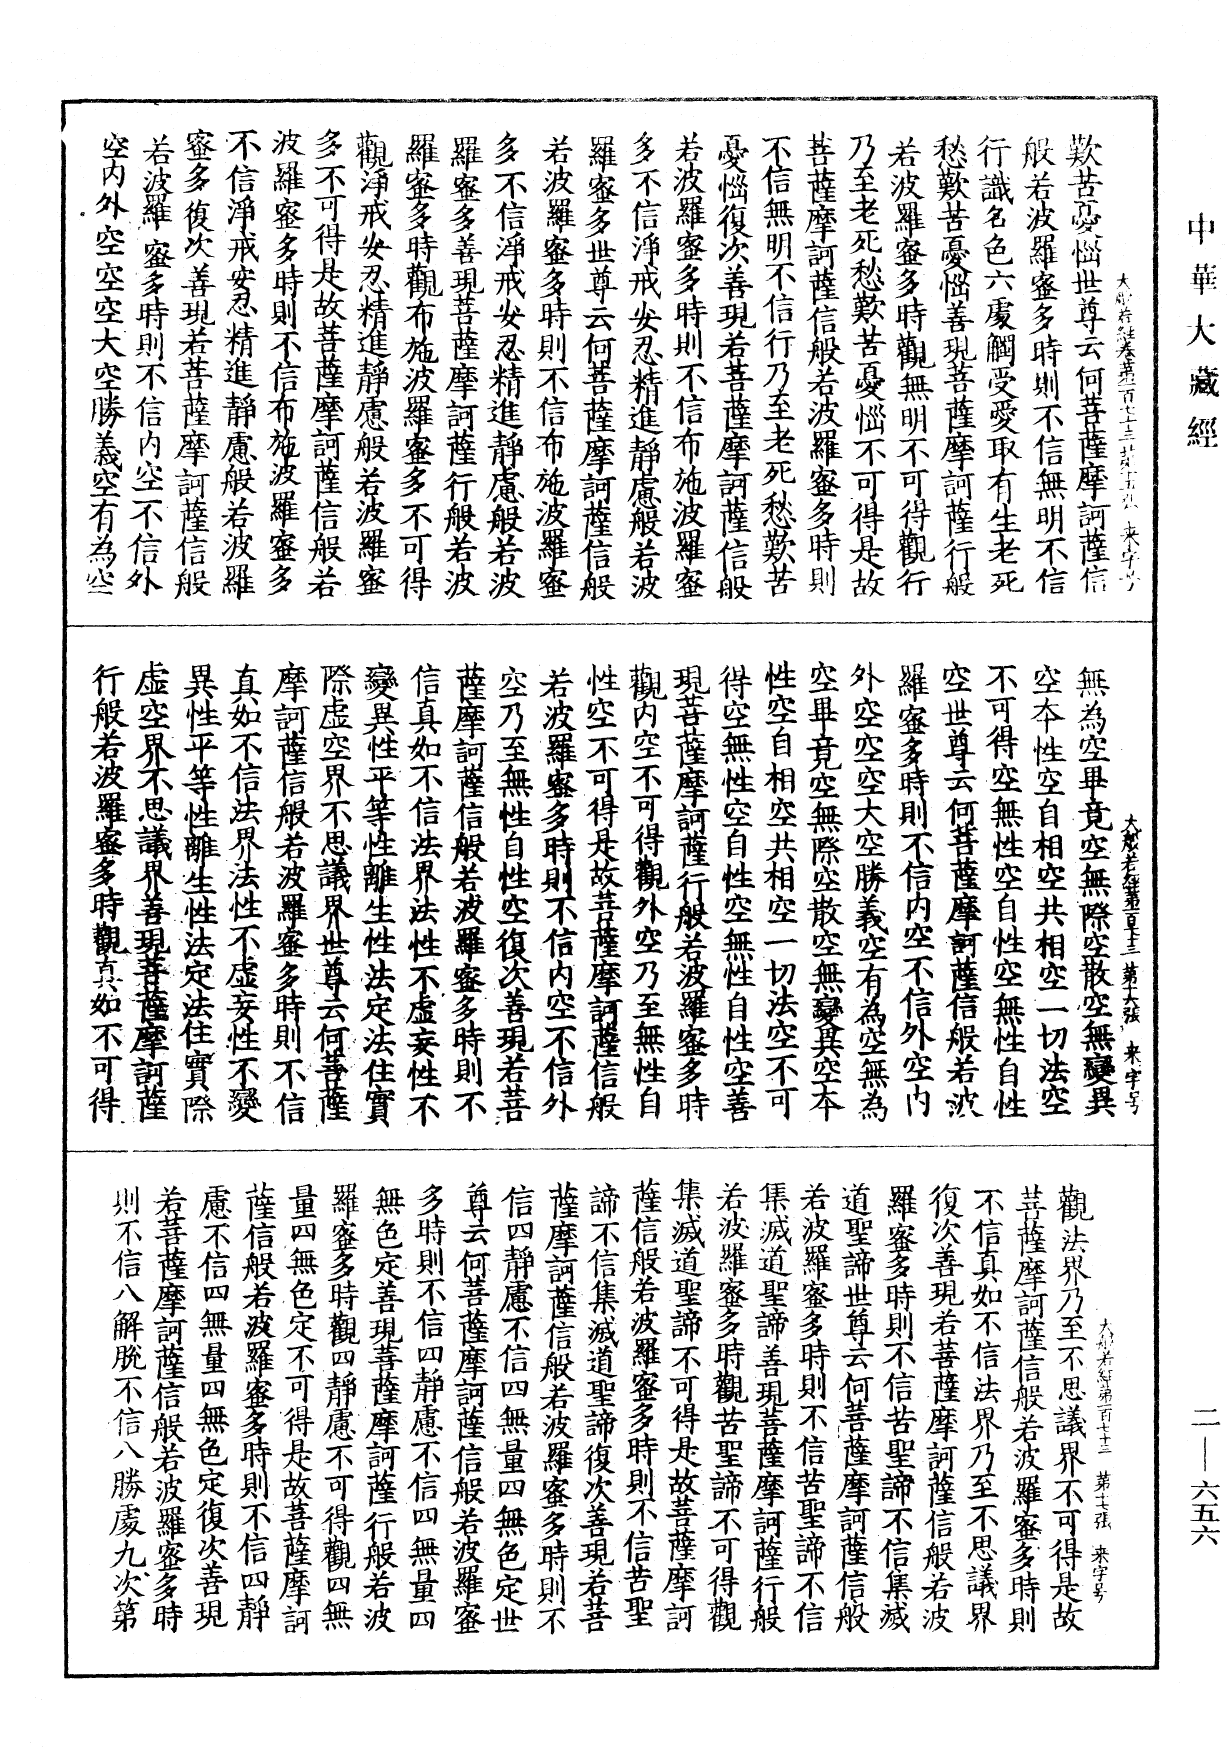 中華大藏經
歎苦憂惱世尊云何菩薩摩訶薩信
般若波羅蜜多時則不信無明不信
行識名色六處觸受愛取有生老死
愁歎苦憂惱善現菩薩摩訶薩行般
若波羅蜜多時觀無明不可得觀行
乃至老死愁歎苦憂惱不可得是故
菩薩摩訶薩信般若波羅蜜多時則
不信無明不信行乃至老死愁歎苦
憂惱復次善現若菩薩摩訶薩信般
若波羅蜜多時則不信布施波羅蜜
多不信淨戒安忍精進靜慮般若波
羅蜜多世尊云何菩薩摩訶薩信般
若波羅蜜多時則不信布施波羅蜜
多不信淨戒安忍精進靜慮般若波
羅蜜多善現菩薩摩訶薩行般若波
羅蜜多時觀布施波羅蜜多不可得
觀淨戒安忍精進靜慮般若波羅蜜
多不可得是故菩薩摩訶薩信般若
波羅蜜多時則不信布施波羅蜜多
不信淨戒安忍精進靜慮般若波羅
蜜多復次善現若菩薩摩訶薩信般
若波羅蜜多時則不信內空不信外
空內外空空空大空勝義空有為空
大般若經第一百七十三 第十六張 來字号
無為空畢竟空無際空散空無變異
空本性空自相空共相空一切法空
不可得空無性空自性空無性自性
空世尊云何菩薩摩訶薩信般若波
羅蜜多時則不信內空不信外空內
外空空空大空勝義空有為空無為
空畢竟空無際空散空無變異空本
性空自相空共相空一切法空不可
得空無性空自性空無性自性空善
現菩薩摩訶薩行般若波羅蜜多時
觀內空不可得觀外空乃至無性自
性空不可得是故菩薩摩訶薩信般
若波羅蜜多時則不信內空不信外
空乃至無性自性空復次善現若菩
薩摩訶薩信般若波羅蜜多時則不
信真如不信法界法性不虛妄性不
變異性平等性離生性法定法住實
際虛空界不思議界世尊云何菩薩
摩訶薩信般若波羅蜜多時則不信
真如不信法界法性不虛妄性不變
異性平等性離生性法定法住實際
虛空界不思議界善現菩薩摩訶薩
行般若波羅蜜多時觀真如不可得
大般若經第一百七十三 第十七張 來字号
觀法界乃至不思議界不可得是故
菩薩摩訶薩信般若波羅蜜多時則
不信真如不信法界乃至不思議界
復次善現若菩薩摩訶薩信般若波
羅蜜多時則不信苦聖諦不信集滅
道聖諦世尊云何菩薩摩訶薩信般
若波羅蜜多時則不信苦聖諦不信
集滅道聖諦善現菩薩摩訶薩行般
若波羅蜜多時觀苦聖諦不可得觀
集滅道聖諦不可得是故菩薩摩訶
薩信般若波羅蜜多時則不信苦聖
諦不信集滅道聖諦復次善現若菩
薩摩訶薩信般若波羅蜜多時則不
信四靜慮不信四無量四無色定世
尊云何菩薩摩訶薩信般若波羅蜜
多時則不信四靜慮不信四無量四
無色定善現菩薩摩訶薩行般若波
羅蜜多時觀四靜慮不可得觀四無
量四無色定不可得是故菩薩摩訶
薩信般若波羅蜜多時則不信四靜
慮不信四無量四無色定復次善現
若菩薩摩訶薩信般若波羅蜜多時
則不信八解脫不信八勝處九次第
二—六五六